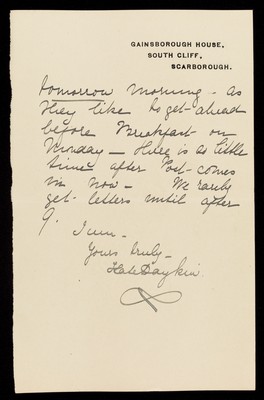 GAINSBOROUGH HOUSE,
SOUTH CLIFF,
SCARBOROUGH.
tomorrow morning - as
they like to get ahead
before Breakfast on
Monday - there is so little
time after Post comes
in now - We rarely
get letters until after
9.
I am -
Yours truly -
Kate Daykin.